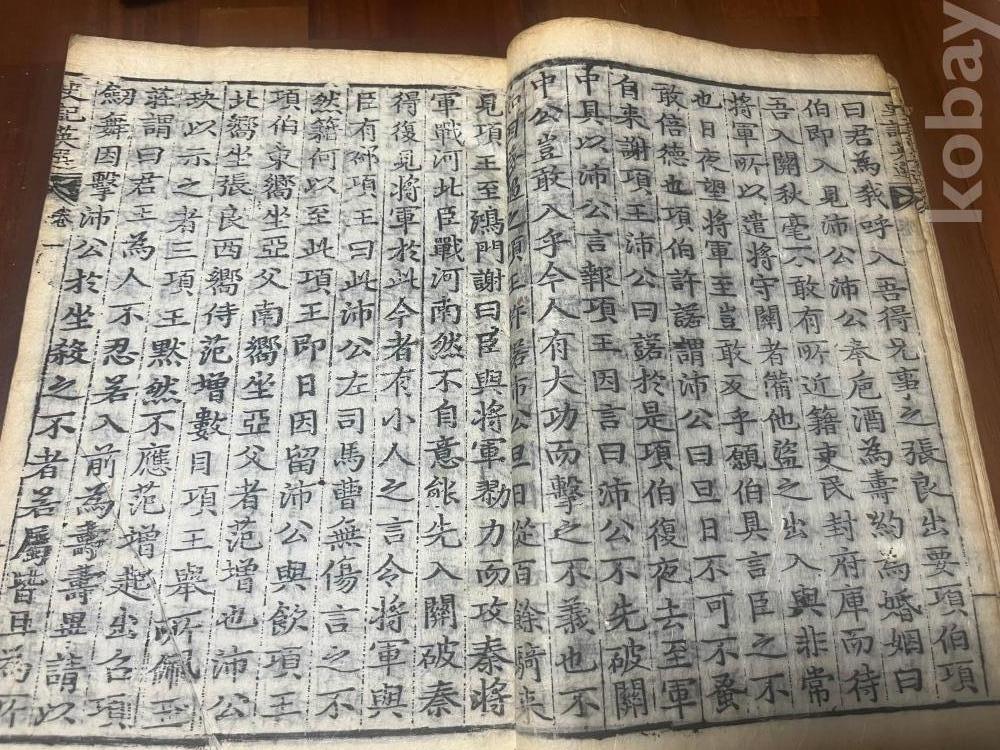 曰君為我呼入吾得兄事之張良出要項伯項
伯即入見沛公沛公奉巵酒為壽約為婚姻曰
吾入關秋毫不敢有所近籍吏民封府庫而待
將軍所以遣將守關者備他盜之出入與非常
也日夜望將軍至豈敢反乎願伯具言臣之不
敢倍德也項伯許諾謂沛公曰旦日不可不蚤
自来謝項王沛公曰諾於是項伯復夜去至軍
中具以沛公言報項王因言曰沛公不先破關
中公豈敢入乎今人有大功而擊之不義也不
遇之項王許諾沛公旦日從百餘騎来
見項王至鴻門謝曰臣與將軍勠力而攻秦將
軍戰河北臣戰河南然不自意能先入關破秦
得復見將軍於此今者有小人之言令將軍與
臣有郤項王曰此沛公左司馬曹無傷言之不
然籍何以至此項王即日因留沛公與飲項王
項伯東嚮坐亞父南嚮坐亞父者范增也沛公
北嚮坐張良西嚮侍范增數目項王舉所佩玉
玦以示之者三項王黙然不應范增起出召項
莊謂曰君王為人不忍若入前為壽壽畢請以
劒舞因擊沛公於坐殺之不者若屬皆且為所
史記英選 卷一
kobay